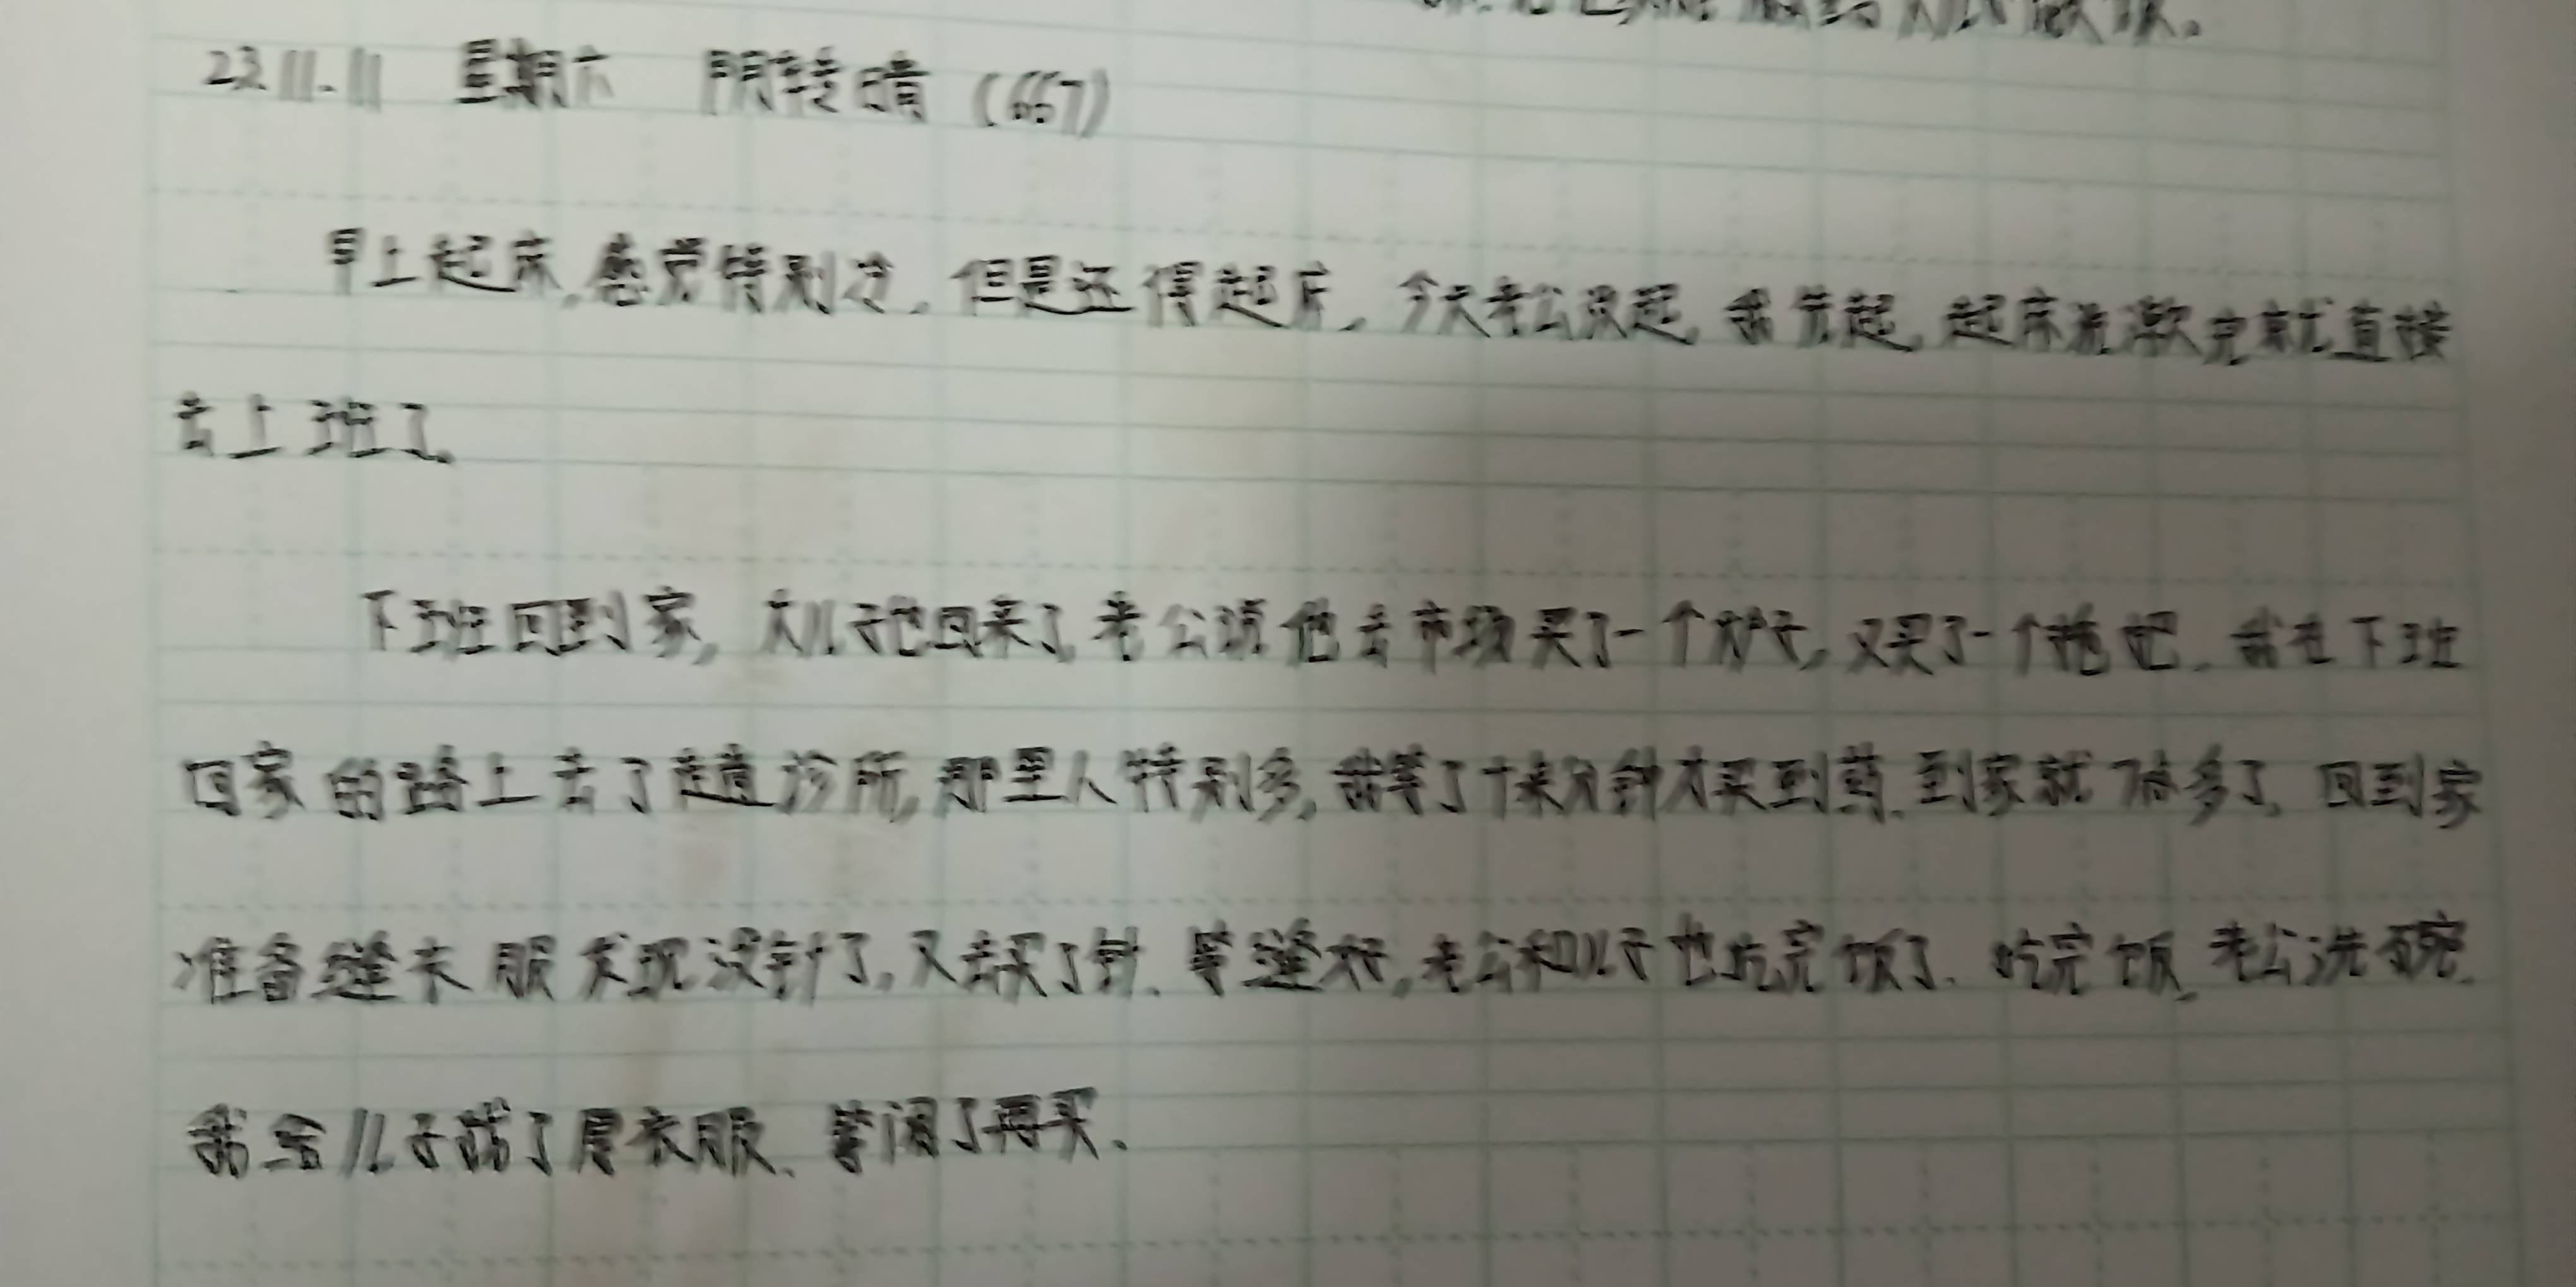 23.11.11 星期六 阴转晴（667）
早上起床，感觉特别冷，但是还得起床，今天老公没起，我先起，起床洗漱完就直接
去上班了。
下班回到家，大儿子也回来了，老公说他去市场买了一个炉子，又买了一个拖把，我在下班
回家的路上去了趟诊所，那里人特别多，我等了十来分钟才买到药，到家就7点多了，回到家
准备缝衣服发现没针了，又去买了针，等缝好，老公和儿子也吃完饭了，吃完饭，老公洗碗，
我给儿子了厚衣服，等闲了再买。